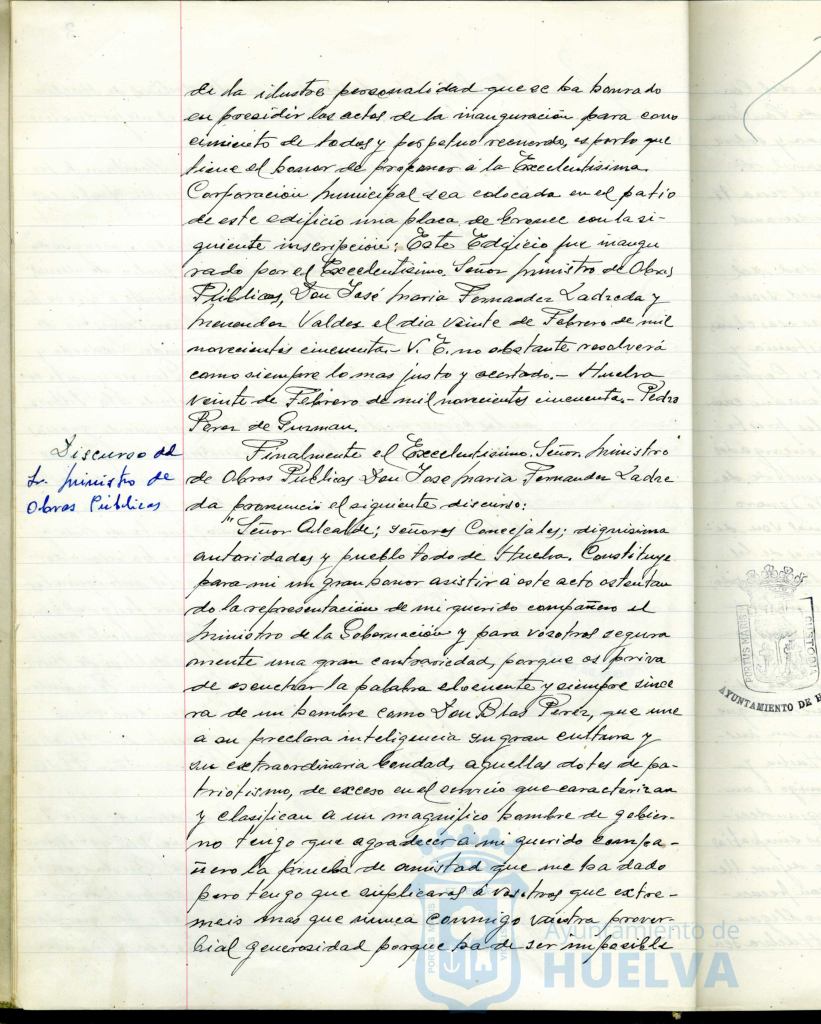 de la ilustre personalidad que se ha honrado
en presidir los actos de la inauguración para cono
cimiento de todos y perpetuo recuerdo, es por lo que
tiene el honor de proponer á la Excelentisima
Corporación Municipal sea colocada en el patio
de este edificio una placa de bronce con la si-
guiente inscripción: Este Edificio fue inaugu
rado por el Excelentisimo Señor Ministro de Obras
Públicas, Don José Maria Fernandez Ladreda y
Menendez Valdes el dia veinte de Febrero de mil
novecientos cincuenta.- V. E. no obstante resolverá
como siempre lo mas justo y acertado.- Huelva
veinte de Febrero de mil novecientos cincuenta.- Pedro
Perez de Guzman.
Discurso del
Sr. Ministro de
Obras Públicas
Finalmente el Excelentisimo Señor Ministro
de Obras Publicas Don Jose Maria Fernandez Ladre
da pronunció el siguiente discurso:
"Señor Alcalde; señores Concejales; dignisima
autoridades y pueblo todo de Huelva. Constituye
para mi un gran honor asistir á este acto ostentan
do la representación de mi querido compañero el
Ministro de la Gobernación y para vosotros segura
mente una gran contrariedad, porque os priva
de escuchar la palabra elocuente y siempre since
ra de un hombre como Don Blas Perez, que une
a su preclara inteligencia su gran cultura y
su extraordinaria bondad, aquellas dotes de pa-
triotismo, de exceso en el servicio que caracterizan
y clasifican a un magnifico hombre de gobier-
no tengo que agradecer á mi querido compa-
ñero la prueba de amistad que me ha dado
pero tengo que suplicaros á vosotros que extre-
meis mas que nunca conmigo vuestra prover-
bial generosidad porque ha de ser imposible
PORTUS MARIS
CUSTODI
AYUNTAMIENTO DE H
Ayuntamiento de
HUELVA